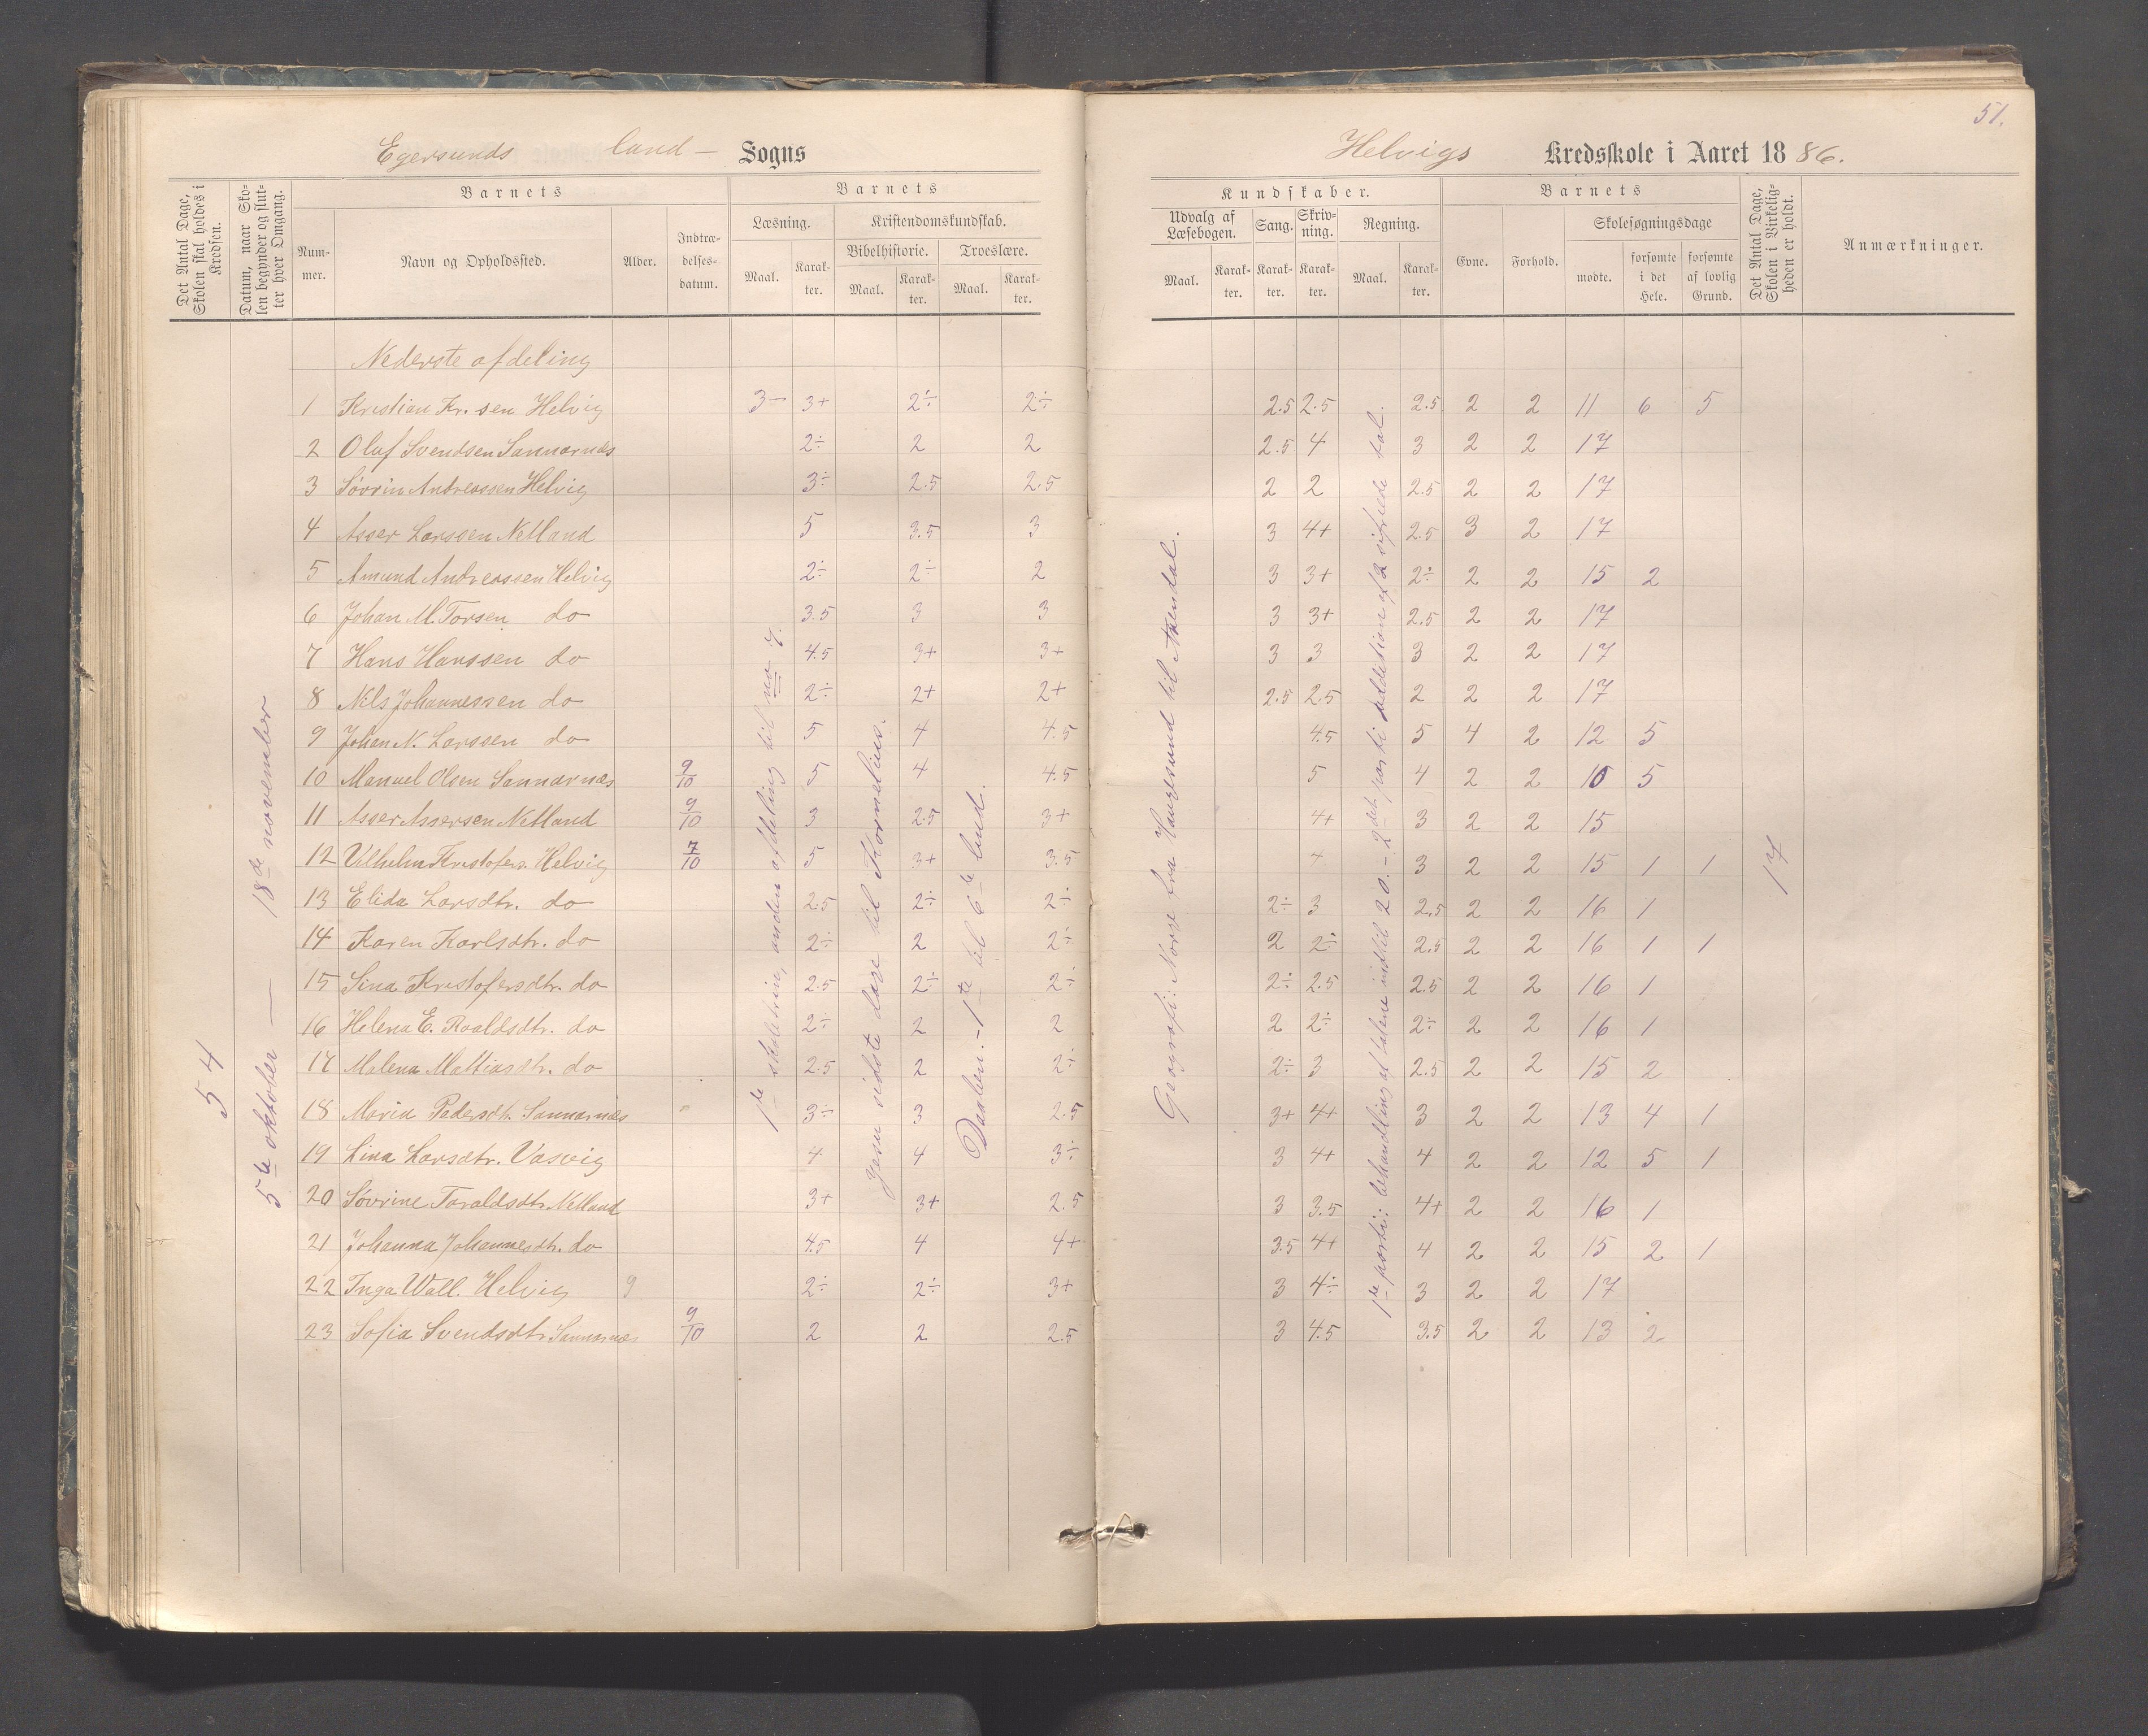 51.
Egersunds land – Sogns
Helvigs Kredsskole i Aaret 1886.
Det Antal Dage, Skolen skal holdes i Kredsen.
Datum, naar Skolen begynder og slutter hver Omgang.
Barnets
Nummer.
Navn og Opholdssted.
Alder.
Indtrædelses-datum.
Barnets
Læsning.
Maal. Karakter.
Kristendomskundskab.
Bibelhistorie. Troeslære.
Maal. Karakter. Maal. Karakter.
Kundskaber.
Udvalg af Læsebogen. Sang. Skrivning. Regning.
Maal. Karakter. Karakter. Karakter. Maal. Karakter.
Barnets
Evne. Forhold.
Skolesøgningsdage
mødte. forsømte i det Hele. forsømte af lovlig Grund.
Det Antal Dage, Skolen i Virkeligheden er holdt.
Anmærkninger.
Nederste afdeling
1 Kristian Kr.sen Helvig 3– 3+ 2÷ 2÷ 2.5 2.5 2.5 2 2 11 6 5
2 Olaf Svendsen Sannarnæs 2÷ 2 2 2.5 4 3 2 2 17
3 Sövrin Andreassen Helvig 3÷ 2.5 2.5 2 2 2.5 2 2 17
4 Asser Larssen Netland 5 3.5 3 3 4+ 2.5 3 2 17
5 Amund Andreassen Helvig 2÷ 2÷ 2 3 3+ 2÷ 2 2 15 2
6 Johan M. Torsen do 3.5 3 3 3 3+ 2.5 2 2 17
7 Hans Hanssen do 4.5 3+ 3+ 3 3 3 2 2 17
8 Nils Johannessen do 2÷ 2+ 2+ 2.5 2.5 2 2 2 17
9 Johan N. Larssen do 5 4 4.5 4.5 5 4 2 12 5
10 Manuel Olsen Sannarnæs 9/10 5 4 4.5 5 4 2 2 10 5
11 Asser Assersen Netland 9/10 3 2.5 3+ 4+ 3 2 2 15
12 Vilhelm Kristofers. Helvig 7/10 5 3+ 3.5 4. 3 2 2 15 1 1
13 Elida Larsdtr. do 2.5 2÷ 2÷ 2÷ 3 2.5 2 2 16 1
14 Karen Karlsdtr. do 2÷ 2 2÷ 2 2÷ 2.5 2 2 16 1 1
15 Sina Kristofersdtr. do 2.5 2÷ 2÷ 2÷ 2.5 2.5 2 2 16 1
16 Helena E. Roaldsdtr. do 2÷ 2 2 2 2÷ 2÷ 2 2 16 1
17 Malena Mattiasdtr. do 2.5 2 2÷ 2÷ 3 2.5 2 2 15 2
18 Maria Pedersdtr. Sannarnæs 3÷ 3 2.5 3+ 4+ 3 2 2 13 4 1
19 Lina Larsdtr. Vasvig 4 4 3÷ 3 4+ 4 2 2 12 5 1
20 Sövrine Taraldsdtr. Netland 3+ 3+ 2.5 3 3.5 4+ 2 2 16 1
21 Johanna Johannesdtr. do 4.5 4 4+ 3.5 4+ 4 2 2 15 2 1
22 Inga Wall. Helvig 9 2÷ 2÷ 3+ 3 4÷ 3 2 2 17
23 Sofia Svendsdtr. Sannarnæs 9/10 2 2 2.5 3 4.5 3.5 2 2 13 2
54
5te oktober — 18de november
1ste skoletrin, anden afdeling til no 7.
Jesu sidste dage til Kornelius.
Daaben. – 1ste til 6te bud.
Geografi: Norge fra Haugesund til Akendal.
1ste parti: behandling af talene indtil 20. – 2det parti addition af 2 sifrede tal.
17